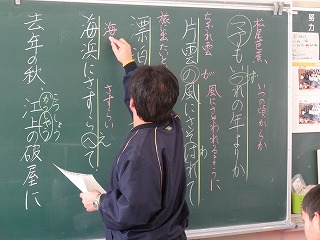 努力
いつの頃からか
松尾芭蕉
予もいづれの年よりか
ず
ちぎれ雲が風にさそわれるように
片雲の風にさそはれて
わ
旅に出たいと
漂泊
海
さすらい
海浜にさすらへて
え
去年の秋、江上の破屋に